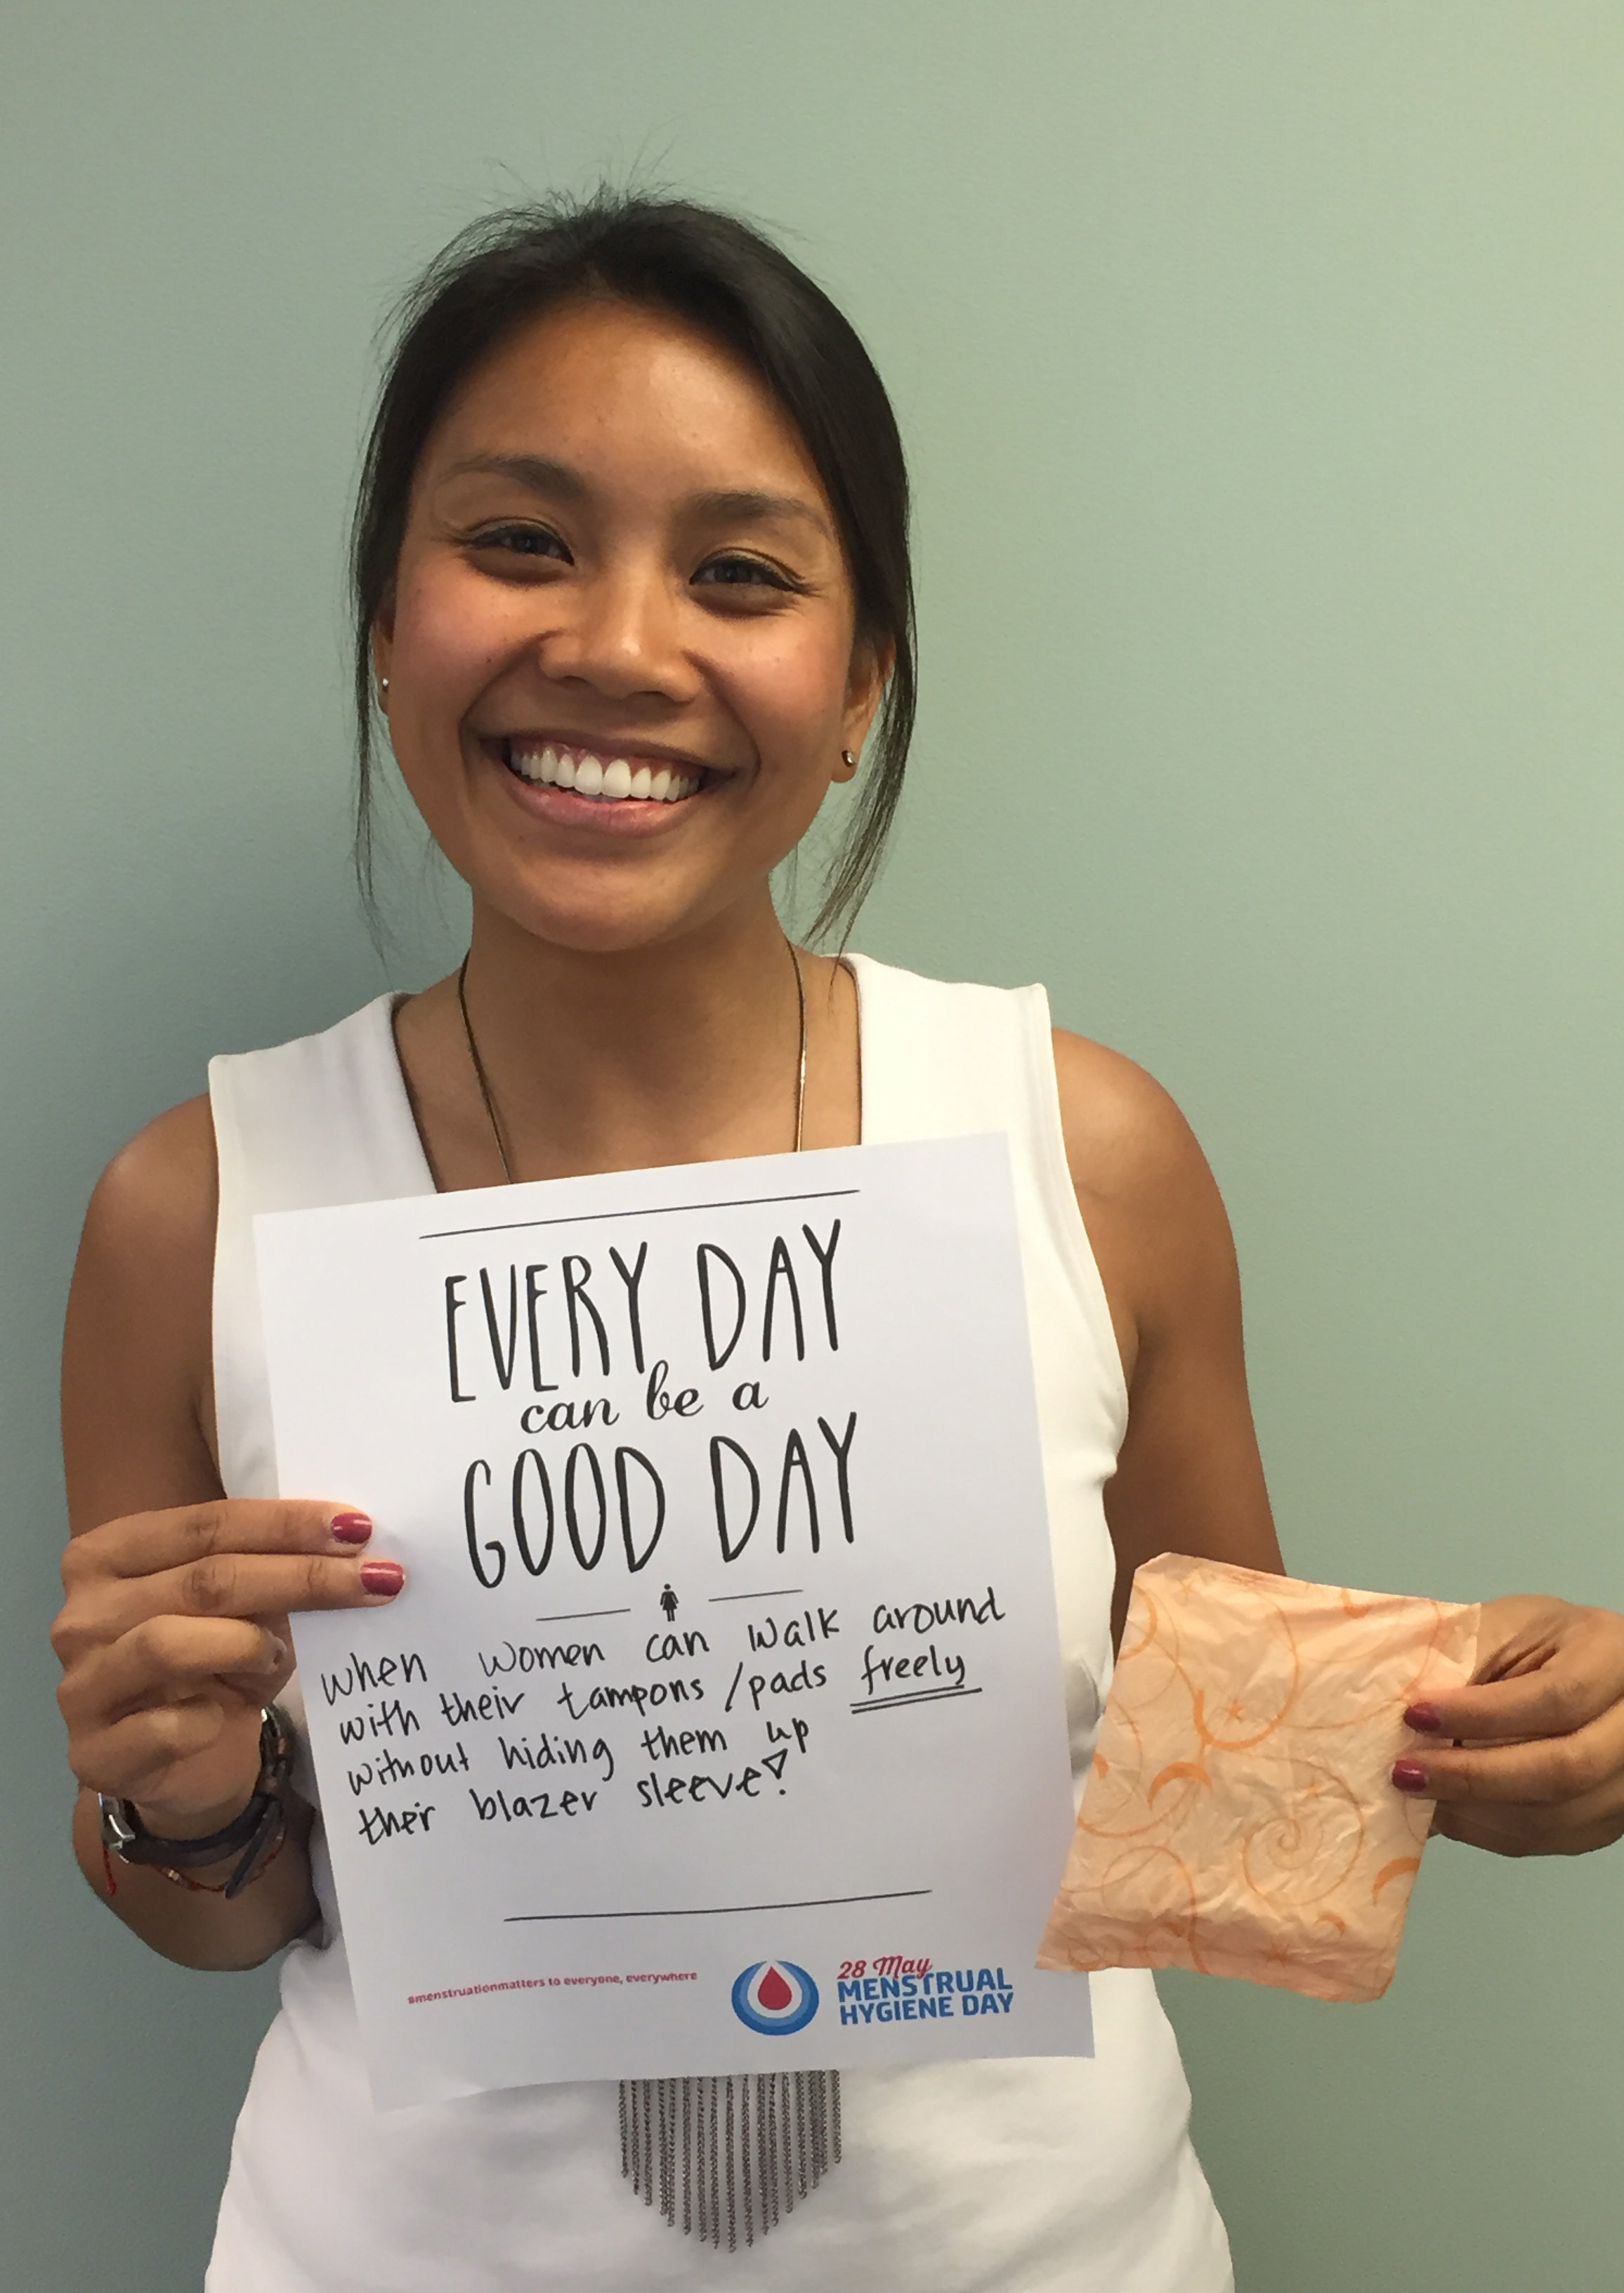 EVERY DAY
can be a
GOOD DAY
when women can walk around
with their tampons/pads freely
without hiding them up
their blazer sleeve!
#menstruationmatters to everyone, everywhere
28 May
MENSTRUAL
HYGIENE DAY